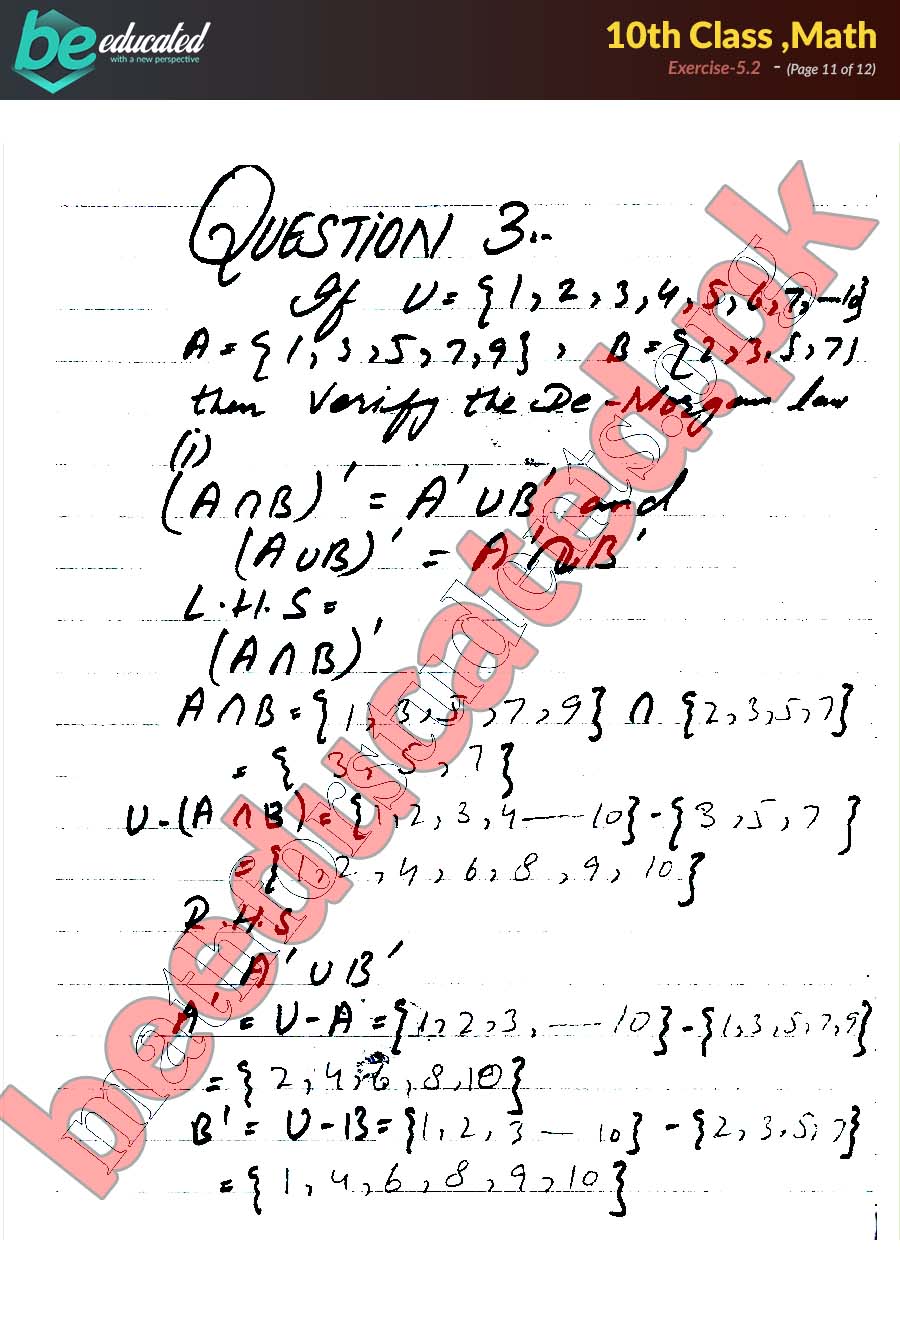 be educated
with a new perspective
10th Class ,Math
Exercise-5.2 - (Page 11 of 12)
QUESTION 3.-
If U = {1, 2, 3, 4, 5, 6, 7, —10}
A = {1, 3, 5, 7, 9} , B = {2, 3, 5, 7}
then Verify the De-Morgan law
(i)
(A∩B)' = A' ∪ B' and
(A∪B)' = A' ∩ B'
L.H.S =
(A∩B)'
A∩B = {1, 3, 5, 7, 9} ∩ {2, 3, 5, 7}
= { 3, 5, 7}
U-(A∩B) = {1, 2, 3, 4 — 10} - {3, 5, 7 }
= {1, 2, 4, 6, 8, 9, 10}
R.H.S
A' ∪ B'
A' = U - A = {1, 2, 3, — 10} - {1, 3, 5, 7, 9}
= {2, 4, 6, 8, 10}
B' = U - B = {1, 2, 3 — 10} - {2, 3, 5, 7}
= {1, 4, 6, 8, 9, 10}
beeducated.pk